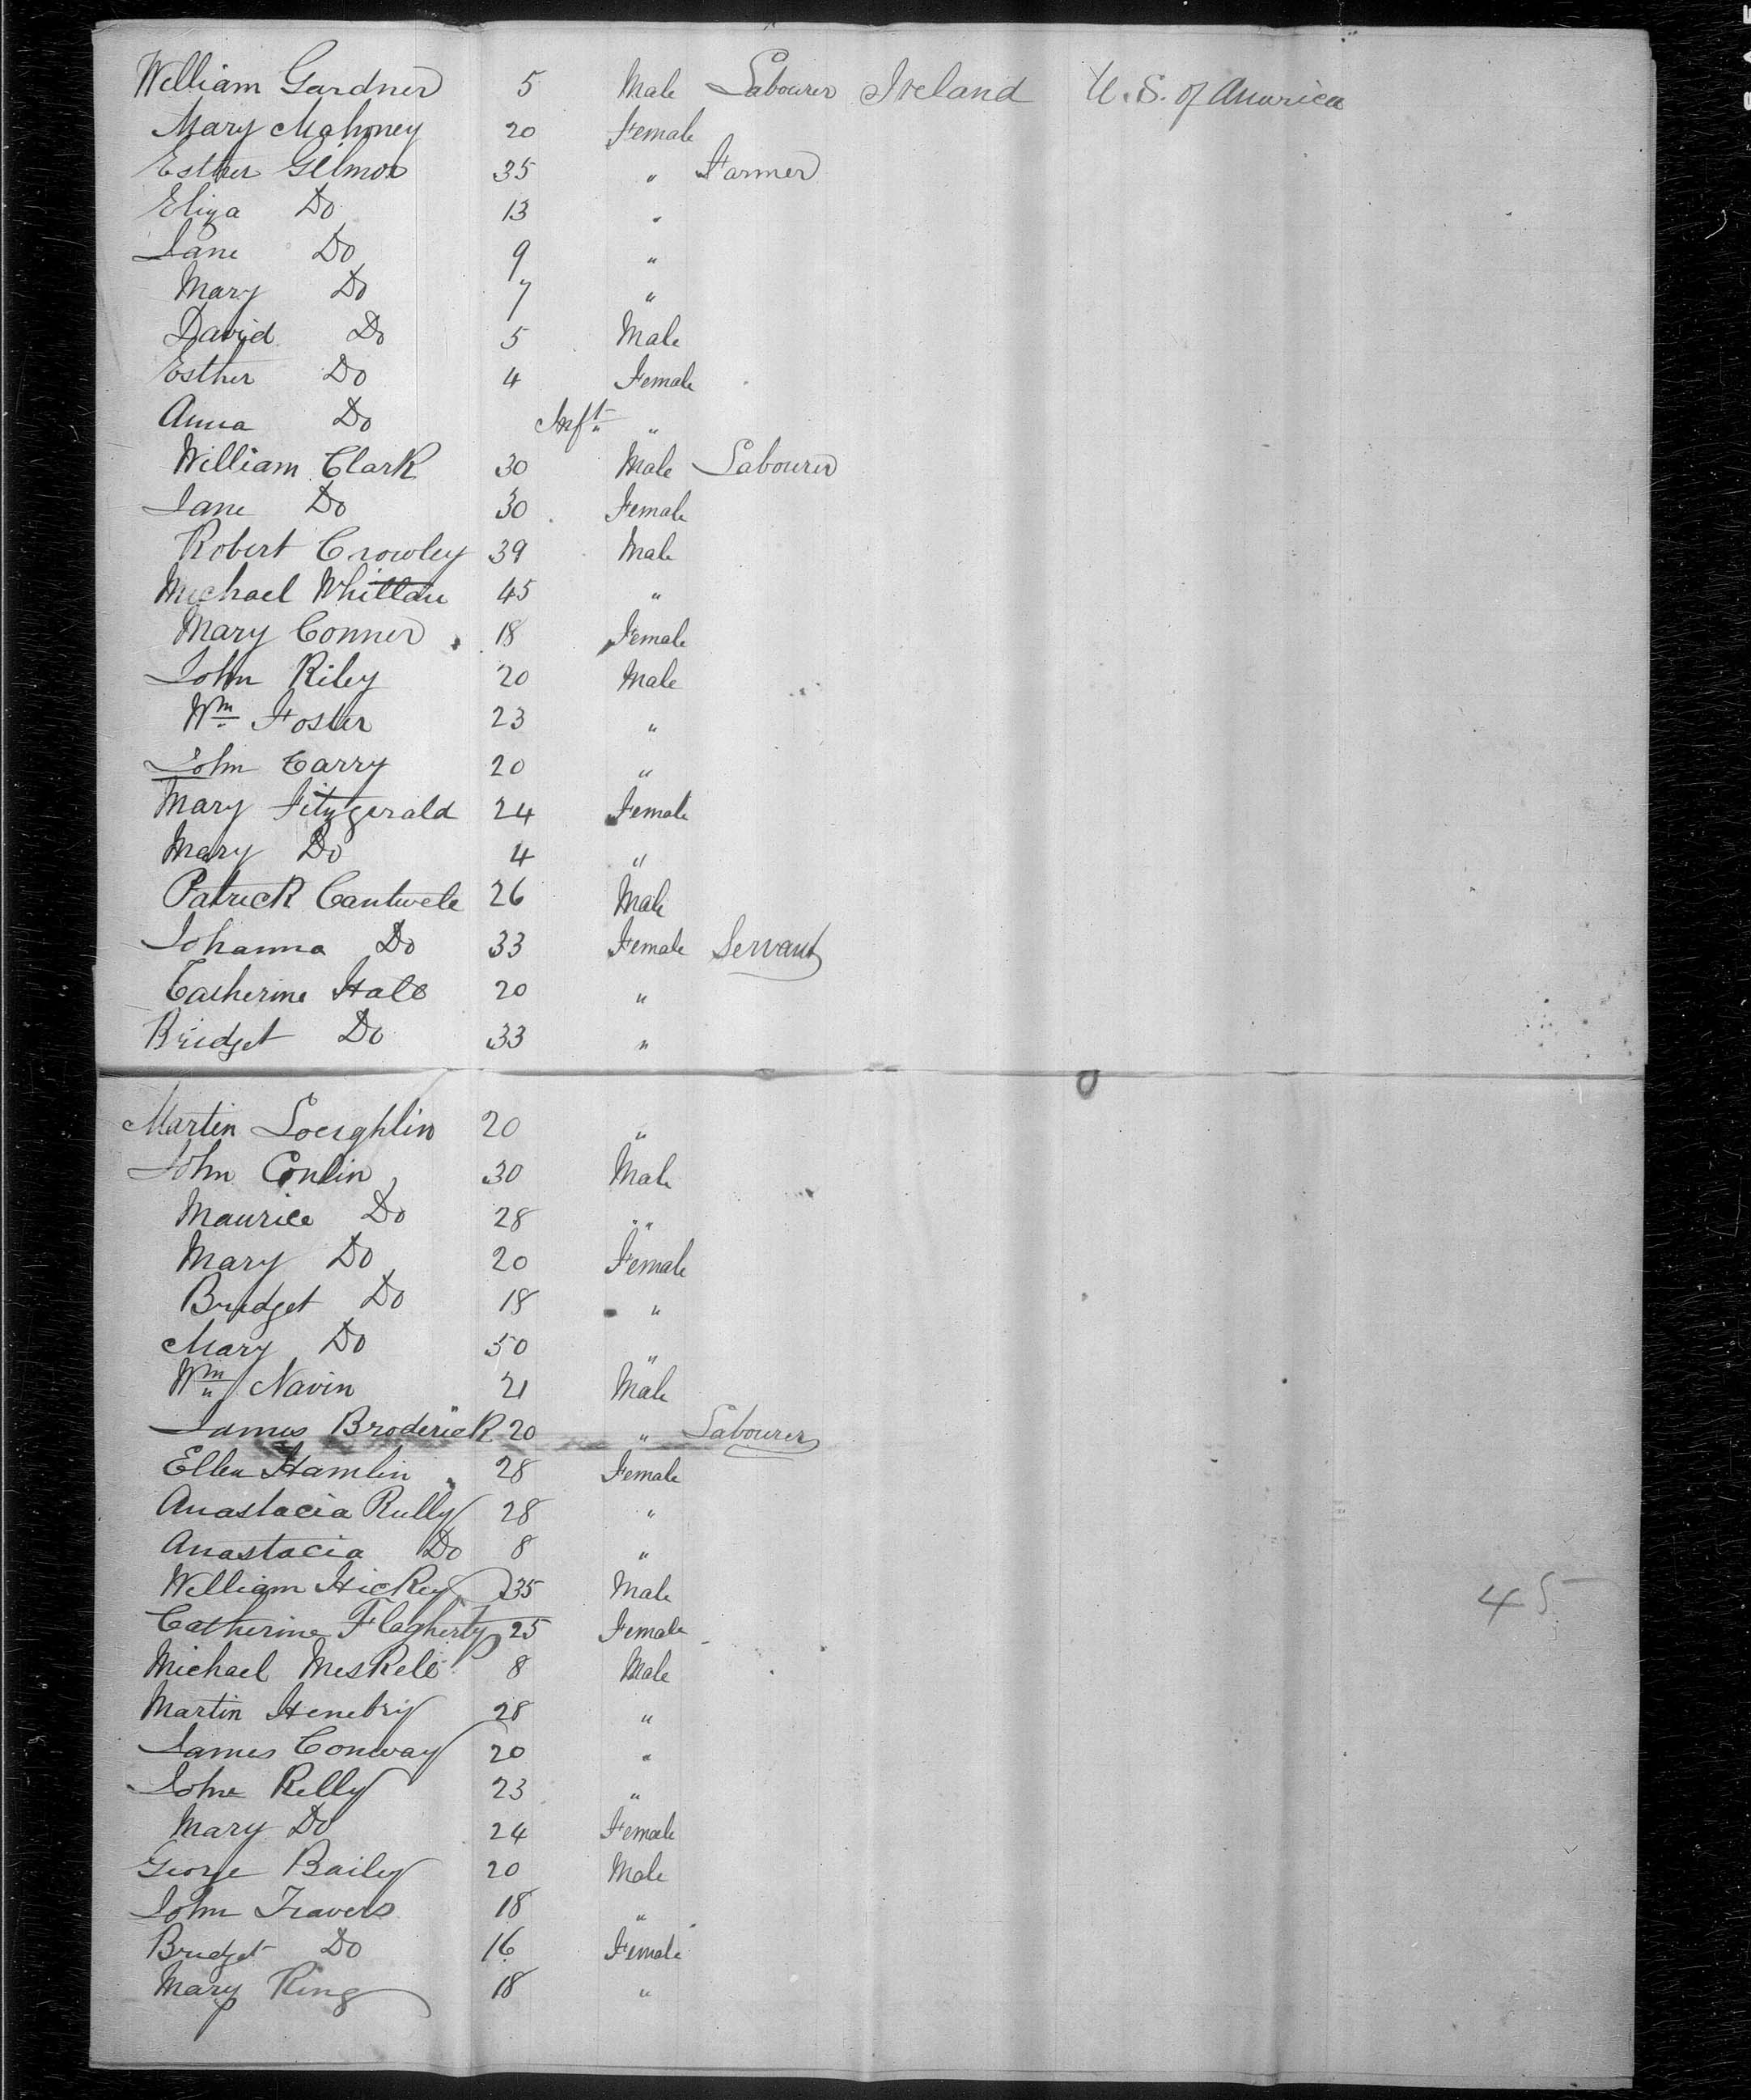 William Gardner 5 Male Labourer Ireland U.S. of America
Mary Mahoney 20 Female
Esther Gilmor 35 " Farmer
Eliza Do 13 "
Jane Do 9 "
Mary Do 7 "
David Do 5 Male
Esther Do 4 Female
Anna Do Inft "
William Clark 30 Male Labourer
Jane Do 30 Female
Robert Crowley 39 Male
Michael 45 "
Mary Conner 18 Female
John Riley 20 Male
Wm Foster 23 "
John Carry 20 "
Mary Fitzgerald 24 Female
Mary Do 4 "
Patrick Cantwell 26 Male
Johanna Do 33 Female Servant
Catherine Hall 20 "
Bridget Do 33 "
Martin Loughlin 20 "
John Conlin 30 Male
Maurice Do 28 "
Mary Do 20 Female
Bridget Do 18 "
Mary Do 50 "
Wm Navin 21 Male
James Broderick 20 " Labourer
Ellen Hamlin 28 Female
Anastacia 28 "
Anastacia Do 8 "
William Hickey 35 Male
Catherine Flagherty 25 Female
Michael Meskell 8 Male
Martin Henebry 28 "
James Conway 20 "
John Kelly 23 "
Mary Do 24 Female
George Bailey 20 Male
John Travers 18 "
Bridget Do 16 Female
Mary King 18 "
45